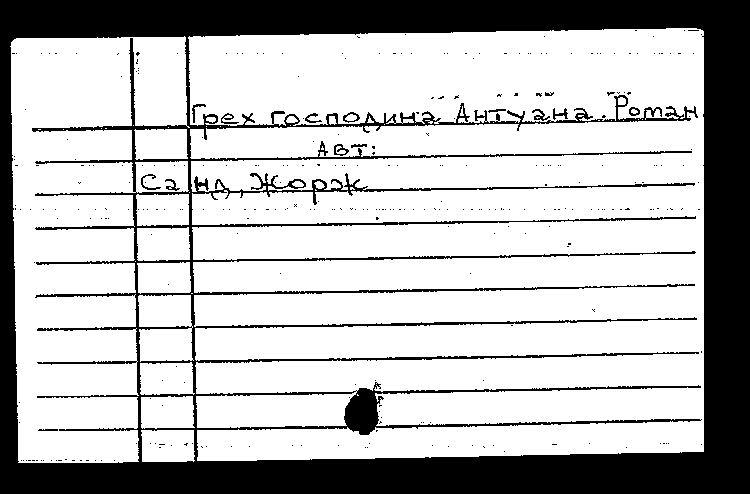 Грех господина Антуана. Роман.
Авт:
Санд, Жорж